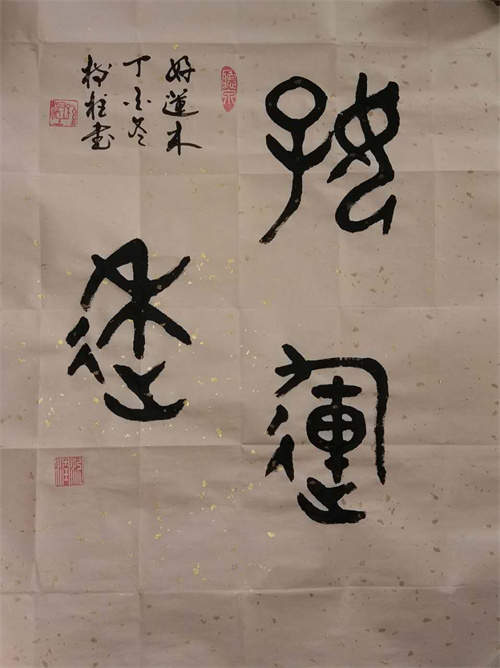 好運
來
好運来
丁酉冬
柱書